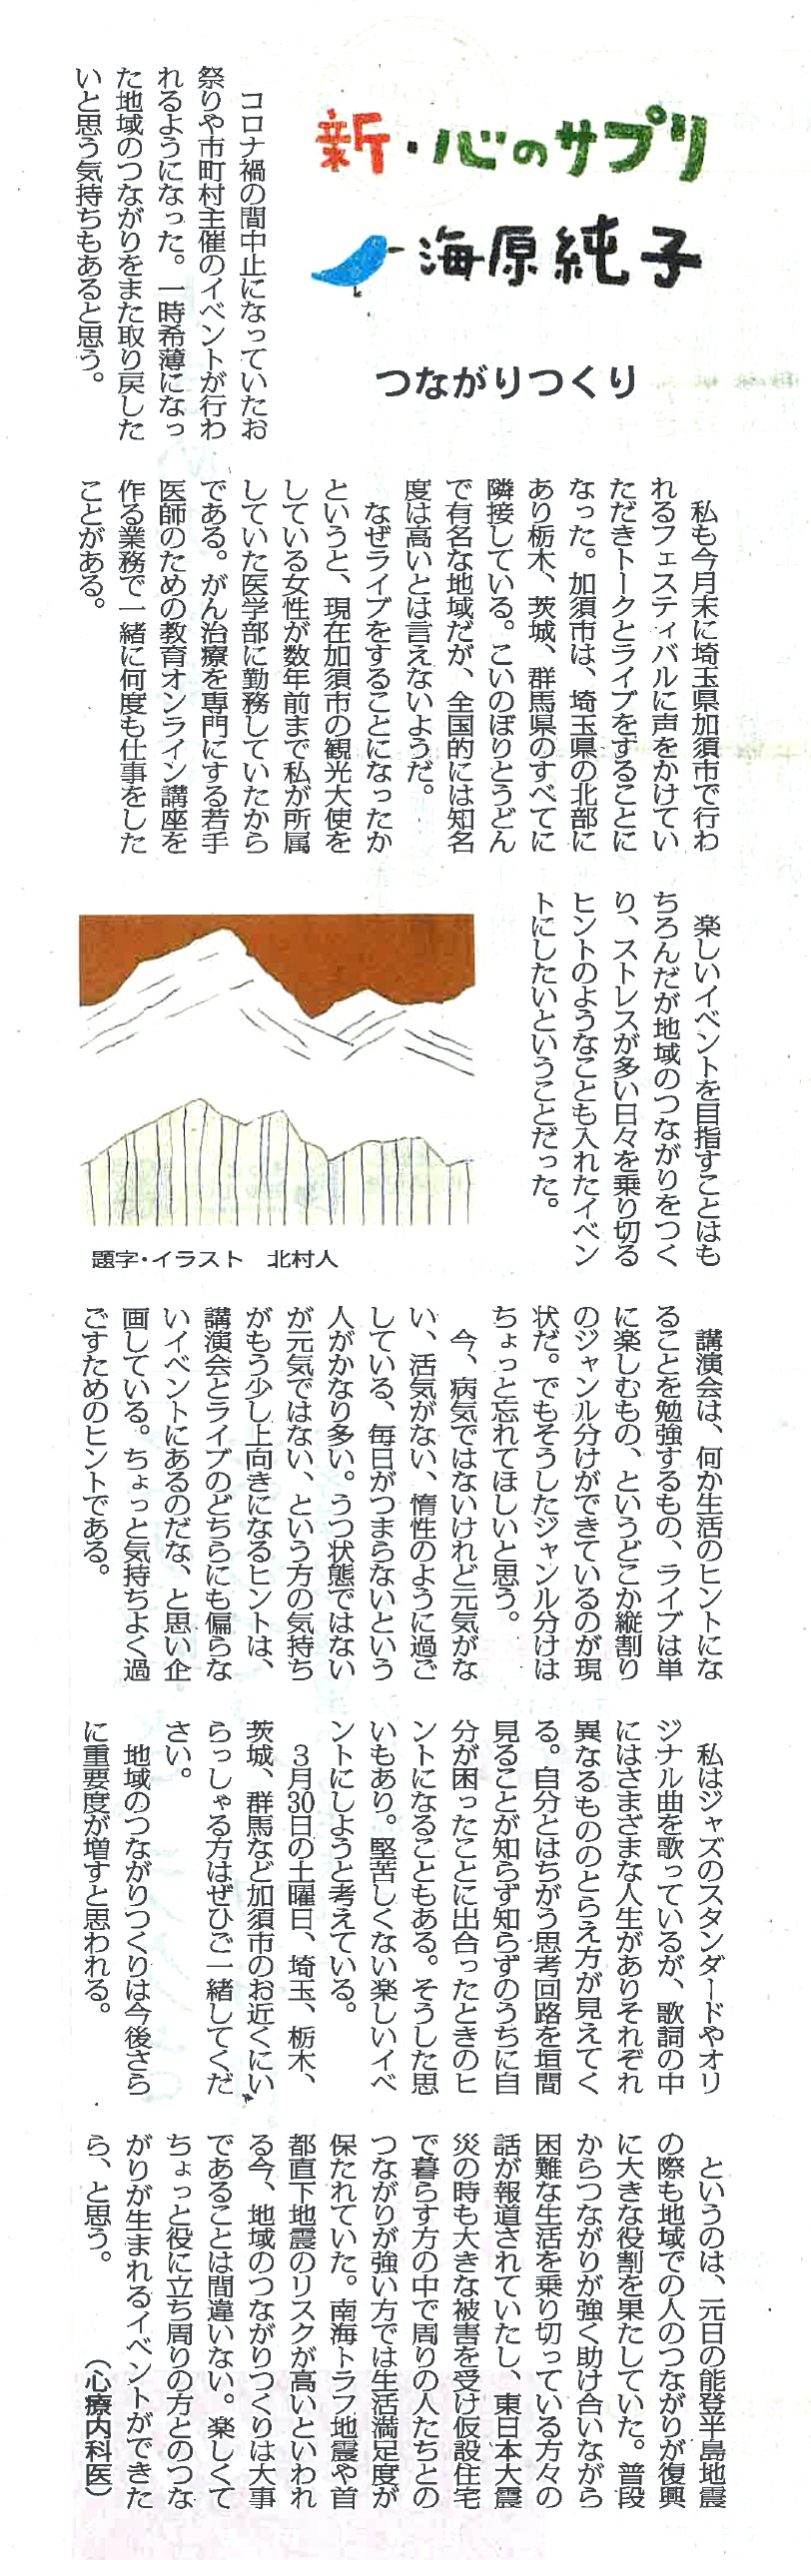 新・心のサプリ
海原純子
つながりつくり
コロナ禍の間中止になっていたお
祭りや市町村主催のイベントが行わ
れるようになった。一時希薄になっ
た地域のつながりをまた取り戻した
いと思う気持ちもあると思う。
私も今月末に埼玉県加須市で行わ
れるフェスティバルに声をかけてい
ただきトークとライブをすることに
なった。加須市は、埼玉県の北部に
あり栃木、茨城、群馬県のすべてに
隣接している。こいのぼりとうどん
で有名な地域だが、全国的には知名
度は高いとは言えないようだ。
なぜライブをすることになったか
というと、現在加須市の観光大使を
している女性が数年前まで私が所属
していた医学部に勤務していたから
である。がん治療を専門にする若手
医師のための教育オンライン講座を
作る業務で一緒に何度も仕事をした
ことがある。
楽しいイベントを目指すことはも
ちろんだが地域のつながりをつく
り、ストレスが多い日々を乗り切る
ヒントのようなことも入れたイベン
トにしたいということだった。
題字・イラスト 北村人
講演会は、何か生活のヒントにな
ることを勉強するもの、ライブは単
に楽しむもの、というどこか縦割り
のジャンル分けができているのが現
状だ。でもそうしたジャンル分けは
ちょっと忘れてほしいと思う。
今、病気ではないけれど元気がな
い、活気がない、惰性のように過ご
している、毎日がつまらないという
人がかなり多い。うつ状態ではない
が元気ではない、という方の気持ち
がもう少し上向きになるヒントは、
講演会とライブのどちらにも偏らな
いイベントにあるのだな、と思い企
画している。ちょっと気持ちよく過
ごすためのヒントである。
私はジャズのスタンダードやオリ
ジナル曲を歌っているが、歌詞の中
にはさまざまな人生がありそれぞれ
異なるもののとらえ方が見えてく
る。自分とはちがう思考回路を垣間
見ることが知らず知らずのうちに自
分が困ったことに出合ったときのヒ
ントになることもある。そうした思
いもあり。堅苦しくない楽しいイベ
ントにしようと考えている。
3月30日の土曜日、埼玉、栃木、
茨城、群馬など加須市のお近くにい
らっしゃる方はぜひご一緒してくだ
さい。
地域のつながりつくりは今後さら
に重要度が増すと思われる。
というのは、元日の能登半島地震
の際も地域での人のつながりが復興
に大きな役割を果たしていた。普段
からつながりが強く助け合いながら
困難な生活を乗り切っている方々の
話が報道されていたし、東日本大震
災の時も大きな被害を受け仮設住宅
で暮らす方の中で周りの人たちとの
つながりが強い方では生活満足度が
保たれていた。南海トラフ地震や首
都直下地震のリスクが高いといわれ
る今、地域のつながりつくりは大事
であることは間違いない。楽しくて
ちょっと役に立ち周りの方とのつな
がりが生まれるイベントができた
ら、と思う。
(心療内科医)